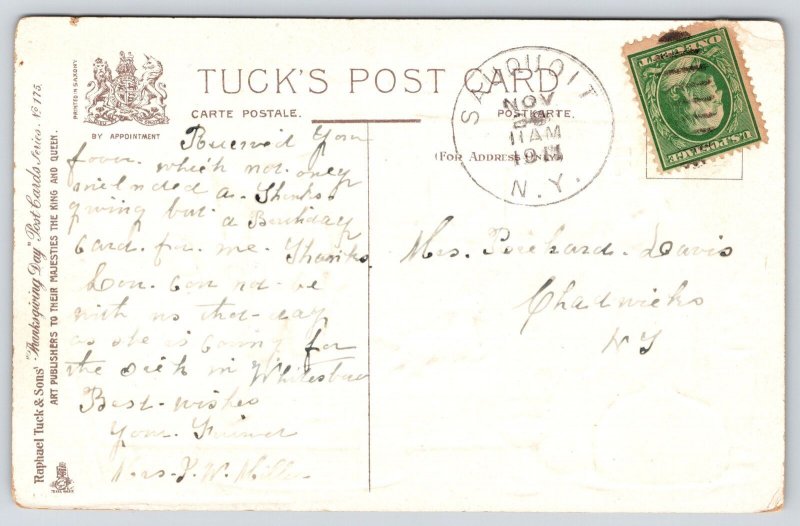 TUCK'S POST CARD
CARTE POSTALE.
POSTKARTE.
(FOR ADDRESS ONLY)
BY APPOINTMENT
PRINTED IN SAXONY
Raphael Tuck & Sons' "Thanksgiving Day" Post Cards Series. No 175.
ART PUBLISHERS TO THEIR MAJESTIES THE KING AND QUEEN.
TRADE MARK
SAUQUOIT
NOV
11 AM
N.Y.
U.S. POSTAGE
ONE
Received your
favor. which not only
included a. Thanks.
giving but. a Birthday
Card. for. me. Thanks
Lou. Can not. be
with us that-day
as she is caring for
the sick in Whitesboro
Best-wishes
Your. Friend
Mrs. J. W. Miller
Mrs. Davis
Chadwicks
NY